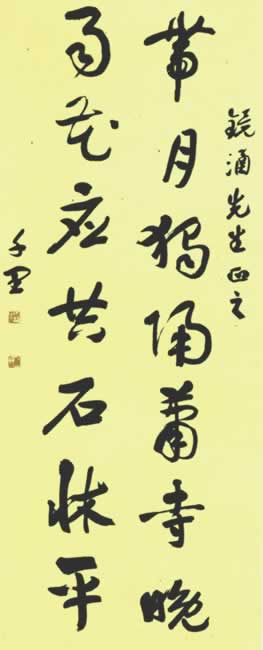 鏡涌先生正之
帶月獨歸蕭寺晚
雨花应共石牀平
千里